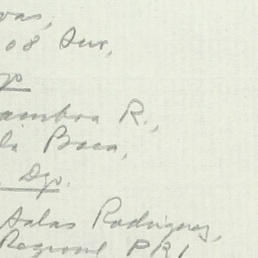 vas,
08 Sur,
go
ambra R.,
la Boca,
Dgo.
Salas Rodriguez,
Regional PRI